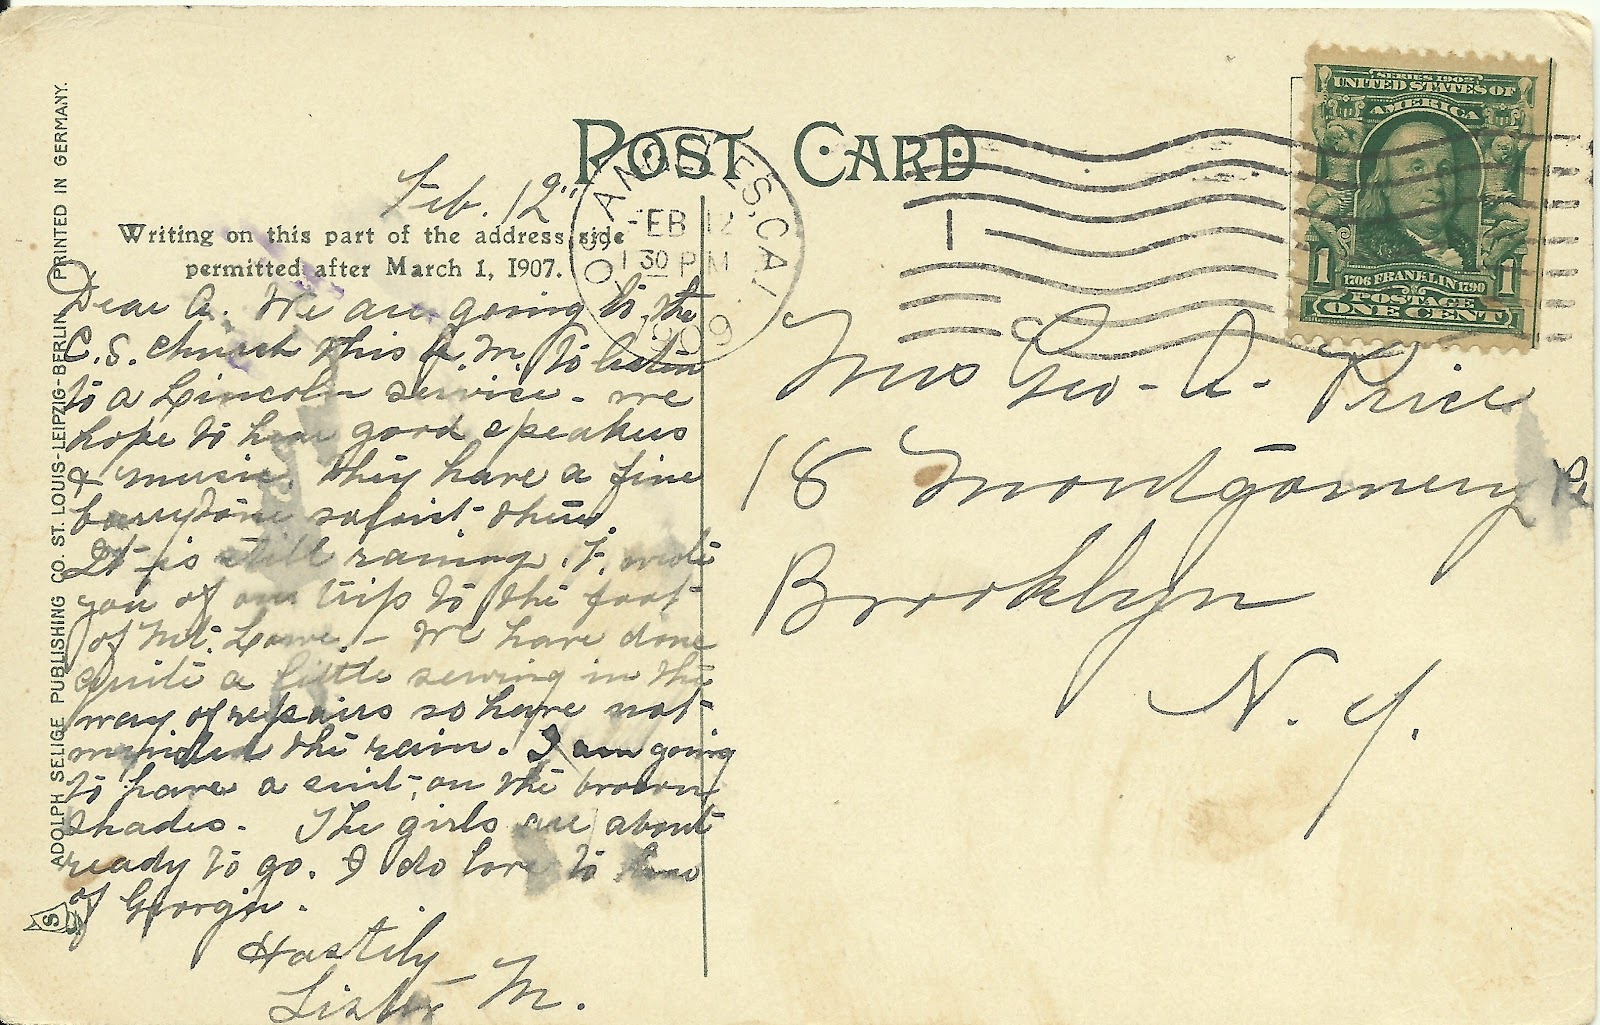 POST CARD
Feb. 12"
Writing on this part of the address side
permitted after March 1, 1907.
Dear A. We are going to the
C.S. church this A.M. to listen
to a Lincoln service - we
hope to hear good speakers
& music. They have a fine
barrytone soloist there.
It is still raining. I wrote
you of our trip to the foot
of Mt. Lowe. - We have done
quite a little sewing in the
way of repairs so have not
minded the rain. I am going
to have a suit, on the brown
shades. The girls are about
ready to go. I do love to hear
of Georgia.
Hastily
Sister M.
ADOLPH SELIGE PUBLISHING CO. ST. LOUIS-LEIPZIG-BERLIN PRINTED IN GERMANY.
S
LOS ANGELES, CAL.
FEB 12
1 30 PM
1909
1
SERIES 1902
UNITED STATES OF
AMERICA
1 1
1706 FRANKLIN 1790
POSTAGE
ONE CENT
Mrs Geo. A. Price
18 Montgomery Pl
Brooklyn
N. Y.